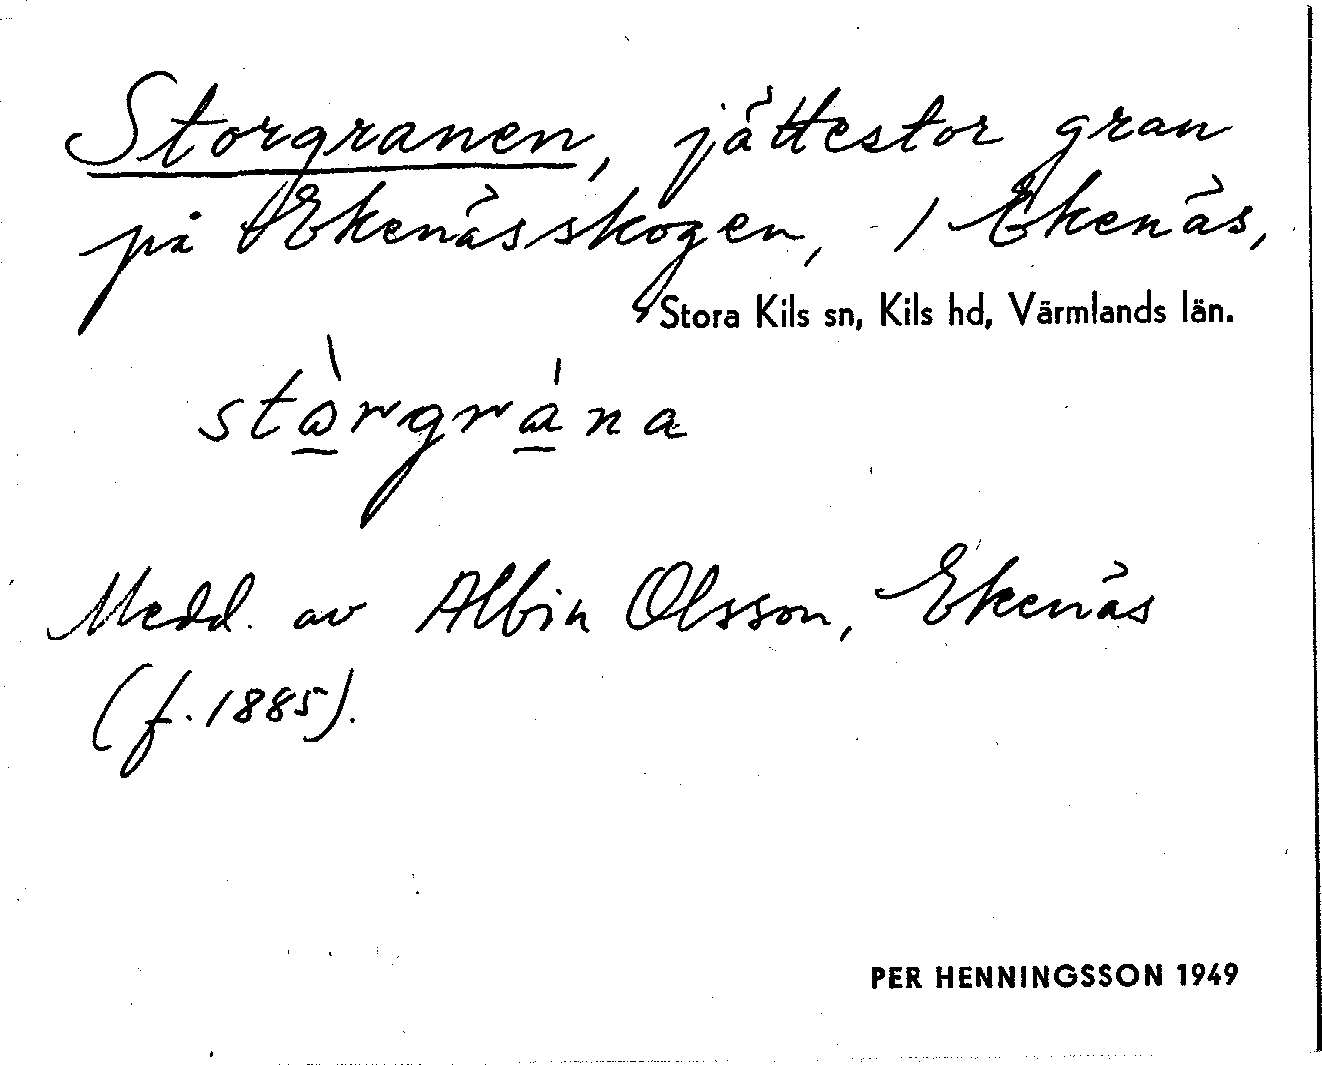 Storgranen, jättestor gran
på Ekenässkogen, / Ekenäs,
Stora Kils sn, Kils hd, Värmlands län.
Medd. av Albin Olsson, Ekenäs
(f. 1885).
PER HENNINGSSON 1949